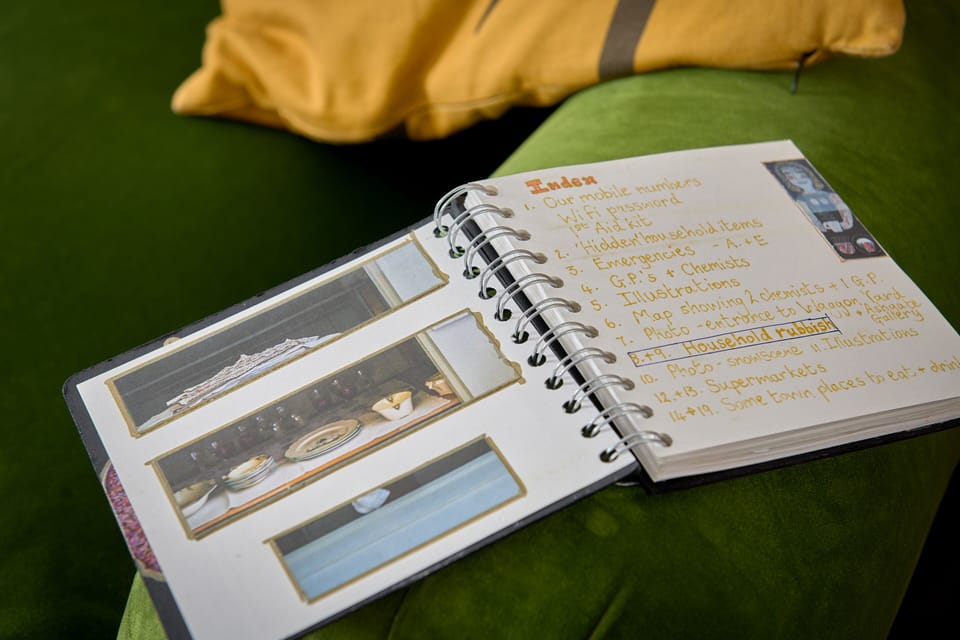 Index
1. Our mobile numbers
Wifi password
1st Aid kit
2. 'Hidden' household items
3. Emergencies - A. + E
4. G.P.'s + Chemists
5. Illustrations
6. Map showing 2 chemists + 1 G.P.
7. Photo - entrance to Wagon Yard + Aspire Gallery
8.+9. Household rubbish
10. Photo - snowscene 11. Illustrations
12.+13. Supermarkets
14→19. Some town places to eat + drink